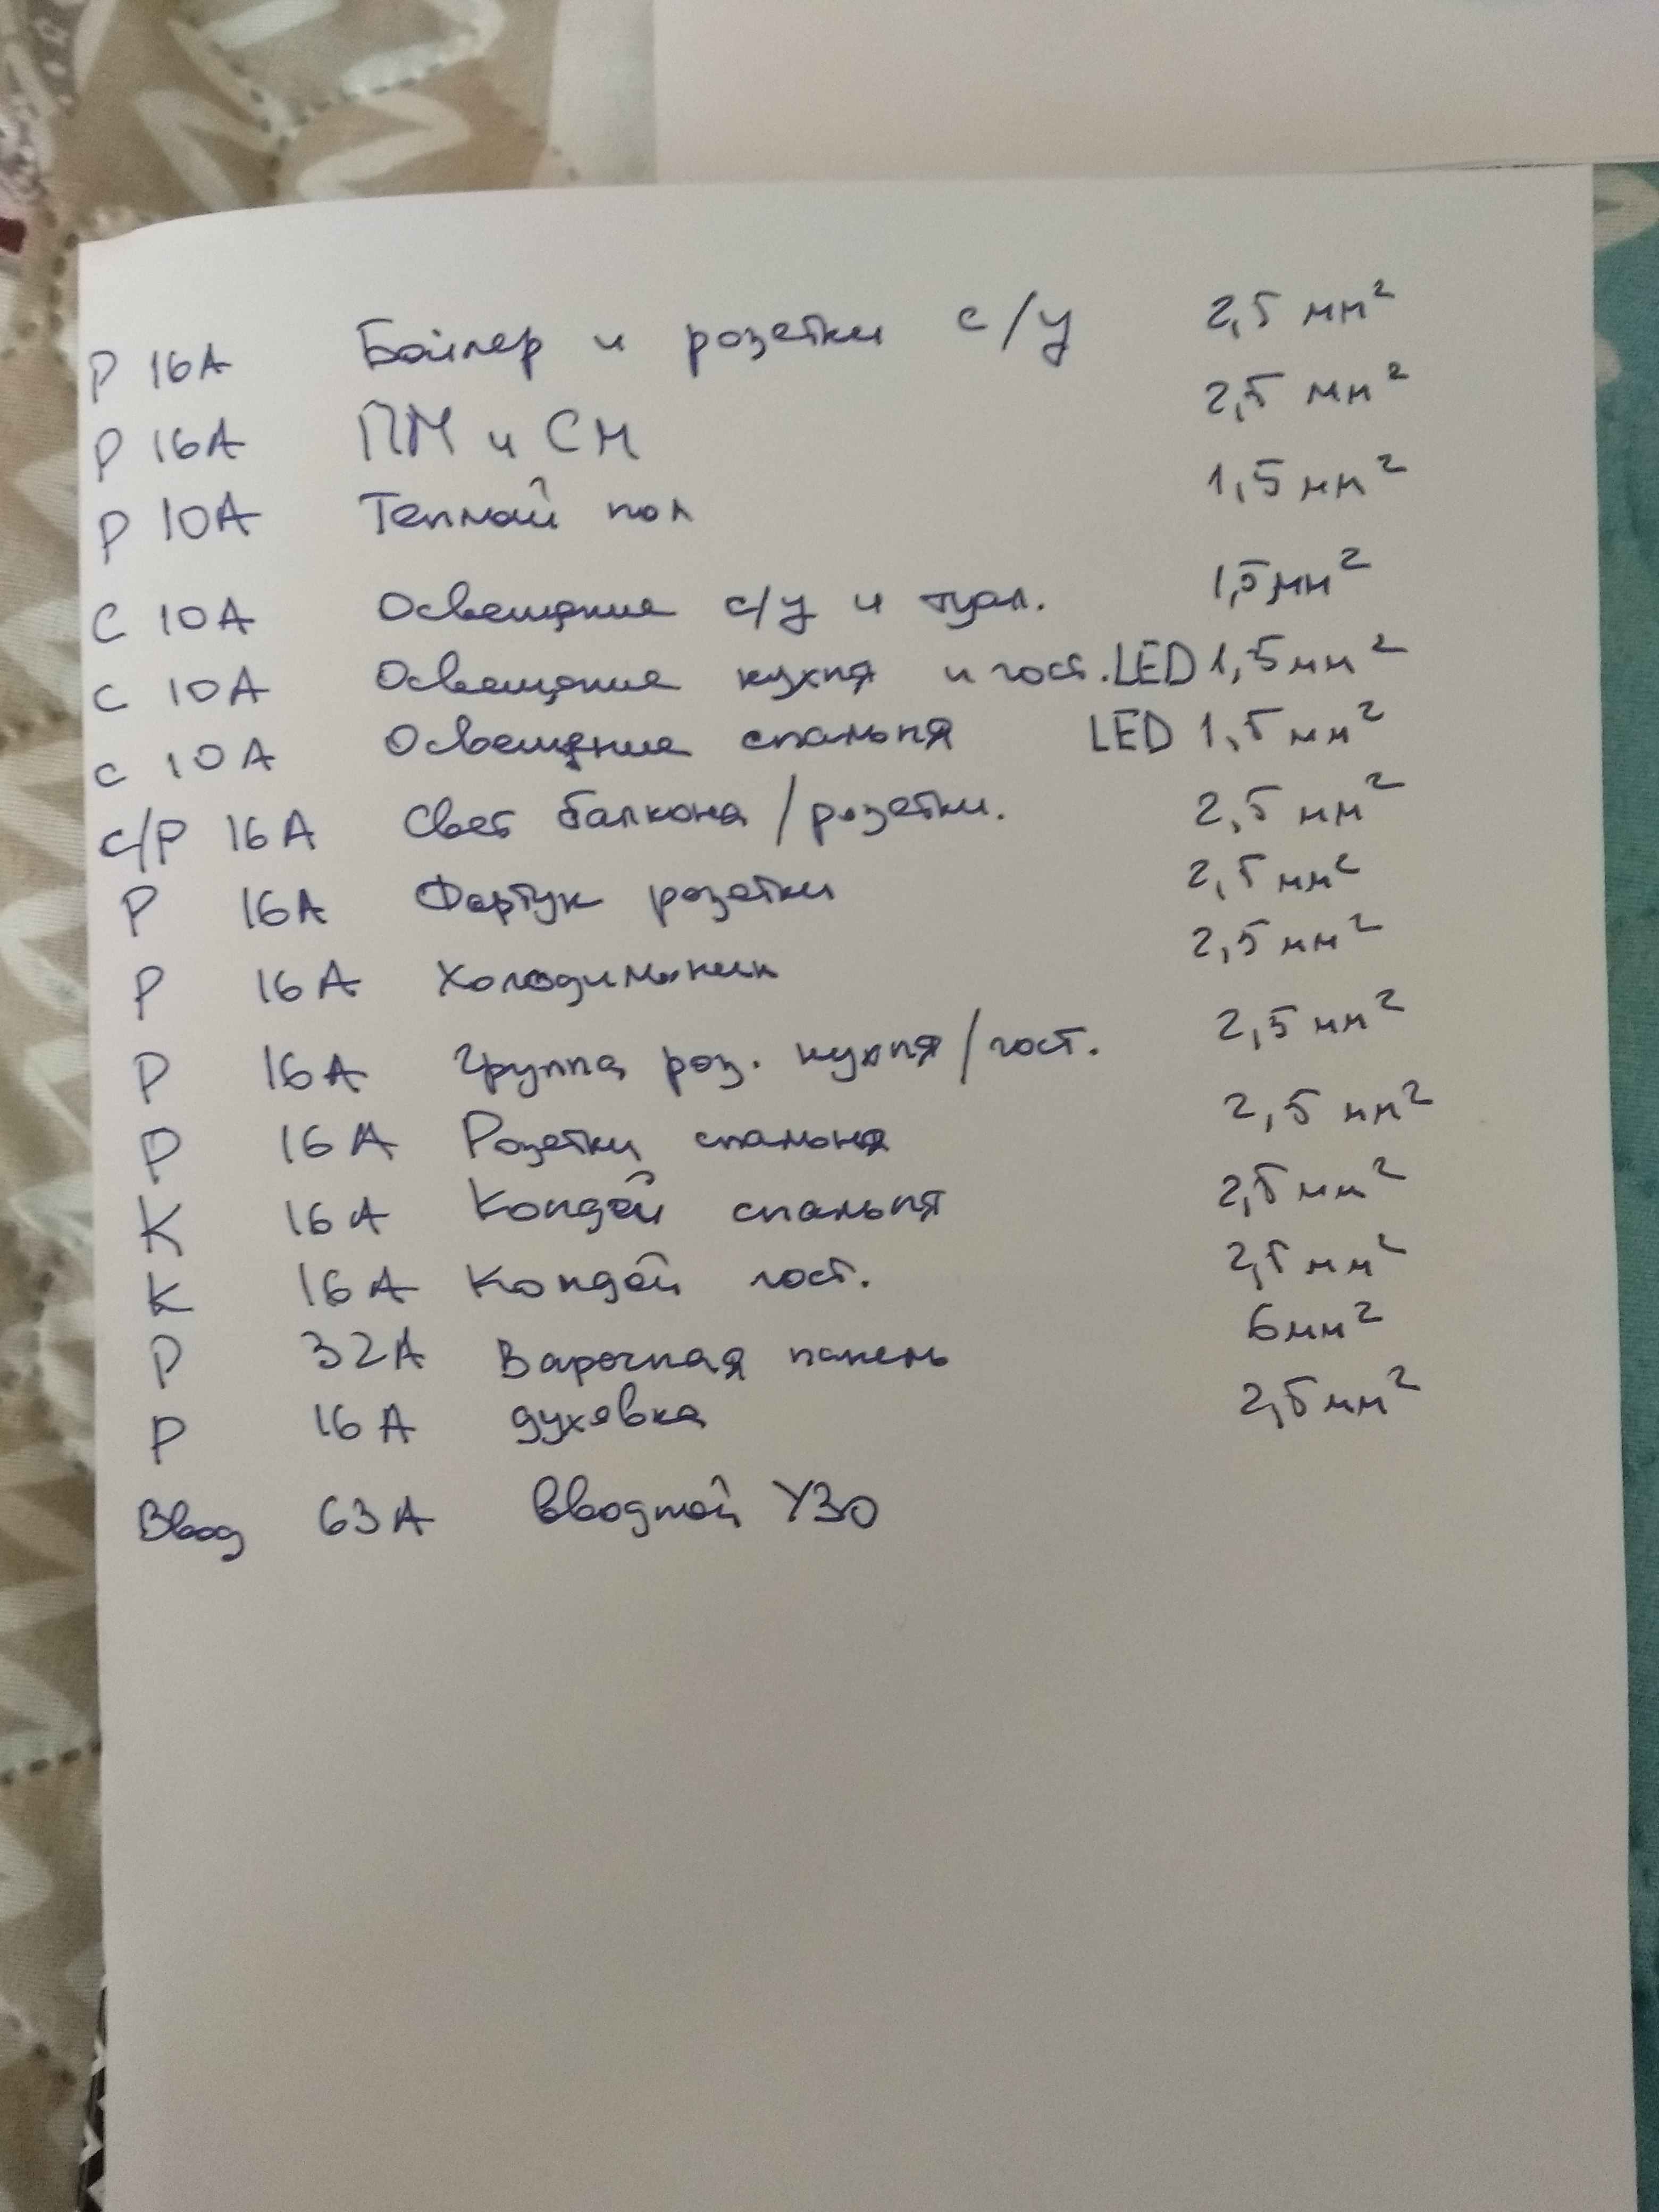 Р 16А Бойлер и розетки с/у 2,5 мм²
Р 16А ПМ и СМ 2,5 мм²
Р 10А Теплый пол 1,5 мм²
С 10А Освещение с/у и туал. 1,5 мм²
С 10А Освещение кухня и гост. LED 1,5 мм²
С 10А Освещение спальня LED 1,5 мм²
С/Р 16А Свет балкона/розетки. 2,5 мм²
Р 16А Фартук розетки 2,5 мм²
Р 16А Холодильник 2,5 мм²
Р 16А Группа роз. кухня/гост. 2,5 мм²
Р 16А Розетки спальня 2,5 мм²
К 16А Кондей спальня 2,5 мм²
К 16А Кондей гост. 2,5 мм²
Р 32А Варочная панель 6 мм²
Р 16А духовка 2,5 мм²
Ввод 63А вводной УЗО